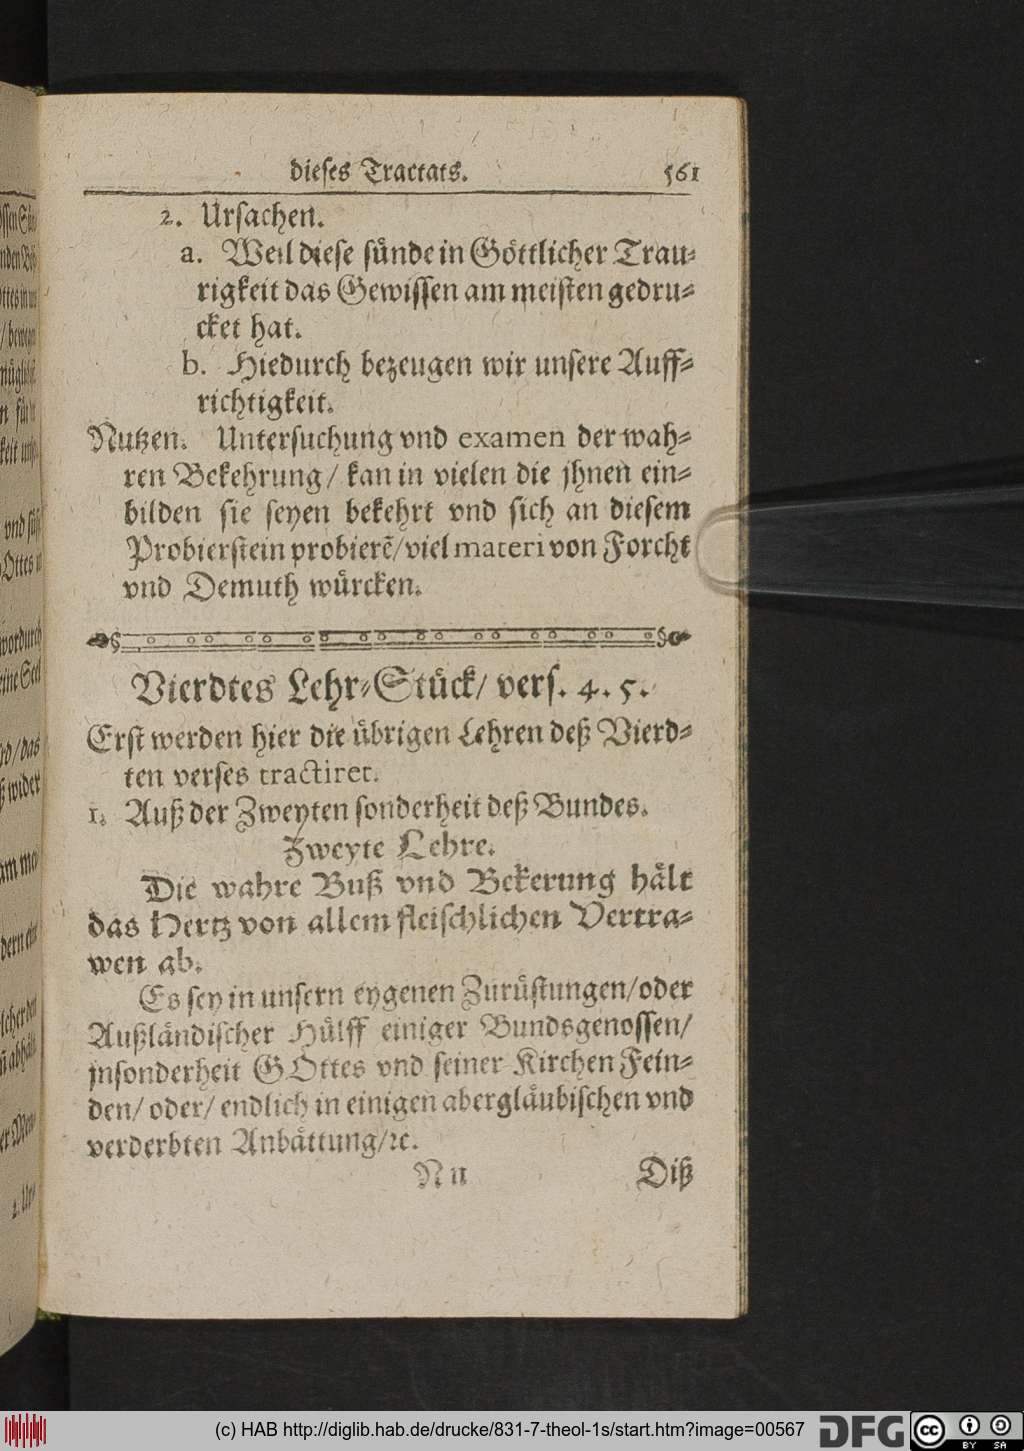 dieses Tractats. 561
2. Ursachen.
a. Weil diese sünde in Göttlicher Trau-
rigkeit das Gewissen am meisten gedru-
cket hat.
b. Hiedurch bezeugen wir unsere Auff-
richtigkeit.
Nutzen. Untersuchung vnd examen der wah-
ren Bekehrung / kan in vielen die jhnen ein-
bilden sie seyen bekehrt vnd sich an diesem
Probierstein probierẽ/ viel materi von Forcht
vnd Demuth würcken.
Vierdtes Lehr-Stück/ vers. 4. 5.
Erst werden hier die übrigen Lehren deß Vierd-
ten verses tractiret.
1. Auß der Zweyten sonderheit deß Bundes.
Zweyte Lehre.
Die wahre Buß vnd Bekerung hält
das Hertz von allem fleischlichen Vertra-
wen ab.
Es sey in unsern eygenen Zurüstungen/ oder
Außländischer Hülff einiger Bundsgenossen/
jnsonderheit GOttes vnd seiner Kirchen Fein-
den/ oder/ endlich in einigen abergläubischen vnd
verderbten Anbättung/ ꝛc.
Nn Diß
(c) HAB http://diglib.hab.de/drucke/831-7-theol-1s/start.htm?image=00567
DFG
cc BY SA